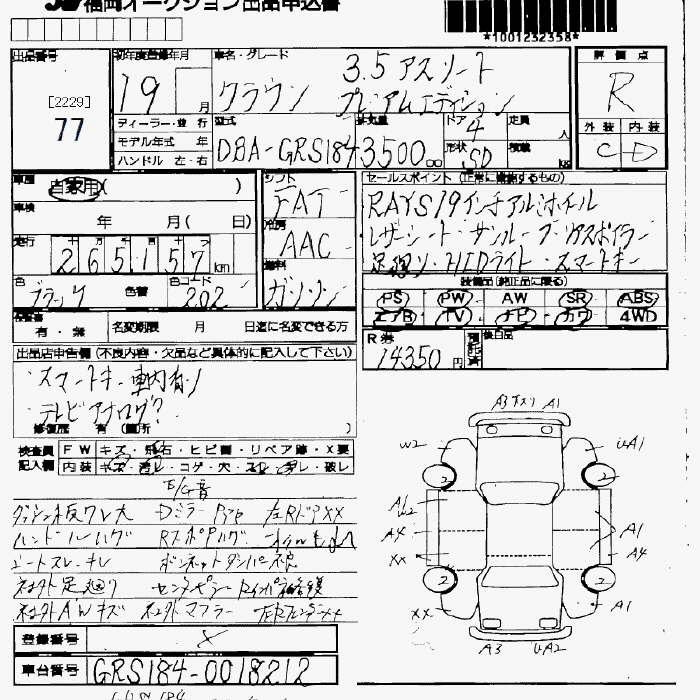 福岡オークション出品申込書
*1001232358*
出品番号
[2229]
77
初年度登録年月
19 月
ディーラー・並行
モデル年式 年
ハンドル 左・右
車名・グレード
クラウン 3.5 アスリート
プレミアムエディション
型式
DBA-GRS184
排気量
3500 cc
ドア
4
形状
SD
定員
人
積載
kg
評価点
R
外装 内装
C D
車歴
自家用( )
車検
年 月( 日)
走行
265157 km
色
ブラック
色替
色コード
202
シフト
FAT
冷房
AAC
燃料
ガソリン
セールスポイント (正常に機能するもの)
RAYS19インチアルミホイール
レザーシート・サンルーフ・リアスポイラー
足廻り・HIDライト・スマートキー
装備品 (純正品に限る)
PS PW AW SR ABS
エアB TV ナビ カワ 4WD
有・無
名変期限 月 日迄に名変できる方
R券
14350 円
預託済
後日品
出品店申告欄 (不良内容・欠品など具体的に記入して下さい)
・スマートキー車内有り
・テレビアナログ?
修復歴 有 (箇所 )
検査員記入欄
FW キズ・飛石・ヒビ割・リペア跡・X要
内装 キズ・汚レ・コゲ・穴・スレ・切レ・破レ
E/G音
ダッシュ板ワレ大 Dミラー 左RドアXX
ハンドルハゲ
シートスレ・キレ ボンネットダンパー不良
社外足廻り センターピラー
社外AWキズ 社外マフラー
登録番号
車台番号 GRS184-0018212
A3 A1
W2 UA1
A1
W2
A4 A1
XX A4
2 2
2 2
XX A1
A3 UA2